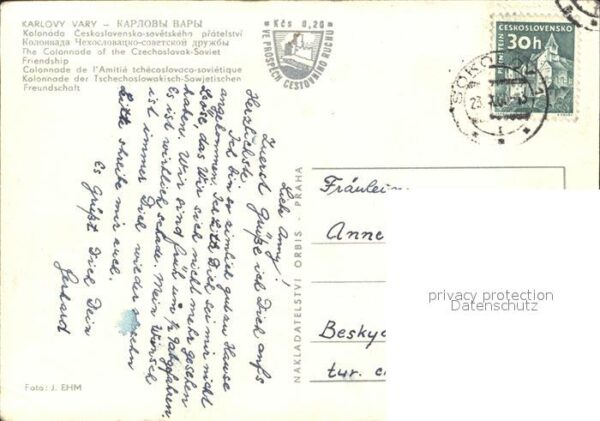 KARLOVY VARY — КАРЛОВЫ ВАРЫ
Kolonáda Československo-sovětského přátelství
Колоннада Чехословацко-советской дружбы
The Colonnade of the Czechoslovak-Soviet
Friendship
Colonnade de l'Amitié tchécoslovaco-soviétique
Kolonnade der Tschechoslowakisch-Sowjetischen
Freundschaft
Kčs 0,20
VE PROSPĚCH CESTOVNÍHO RUCHU
30h
ČESKOSLOVENSKO
PERNŠTEJN
SOKOLOV 1
Lieb Anny!
Zuerst Grüße ich Dich aufs
Herzlichste.
Ich bin er zimlich gut zu Hause
angekommen. Ich Bitte Dich sei mir nicht
böse das Wir sich nicht mehr gesehen
haben. Wir sind früh um 1/2 7 abgefahren.
Es ist wirklich schade. Mein Wunsch
ist immer Dich wieder zu sehen
Bitte schreibe mir auch.
Es Grüßt Dich Dein
Gerhard
Foto: J. EHM
NAKLADATELSTVÍ ORBIS - PRAHA
Fräulein
Anne
Besky
tur. c
privacy protection
Datenschutz